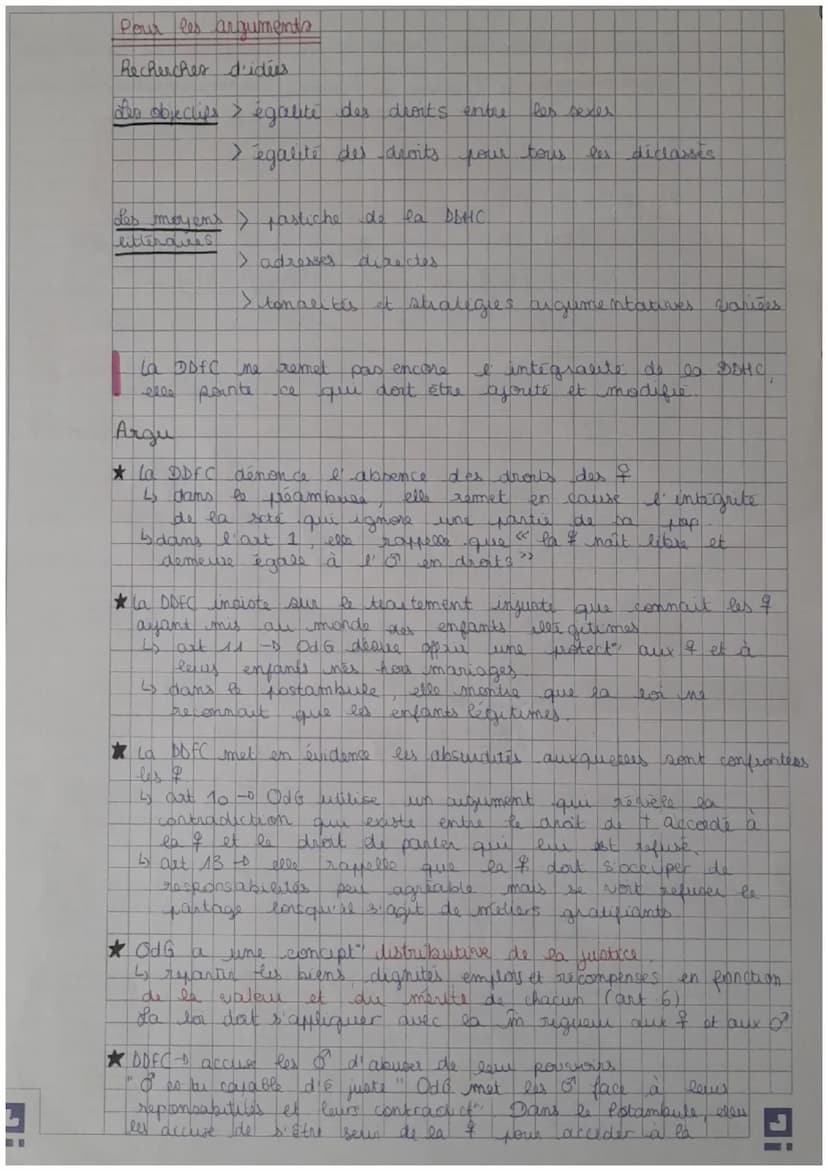 Pour les arguments
Recherches d'idées
Les objectifs > égalité des droits entre les sexes
> égalité des droits pour tous les déclassés
Les moyens > pastiche de la DDHC
littéraires
> adresses directes
> tonalités et stratégies argumentatives variées
La DDFC ne remet pas encore l'intégralité de la DDHC,
elle pointe ce qui doit être ajouté et modifié.
Argu
★ La DDFC dénonce l'absence des droits des ♀
↳ dans le préambule, elle remet en cause l'intégrité
de la sté qui ignore une partie de sa pop.
↳ dans l'art 1, elle rappelle que « la ♀ naît libre et
demeure égale à l'♂ en droits »
★ La DDFC insiste sur le traitement injuste que connait les ♀
ayant mis au monde des enfants illégitimes
↳ art 11 → OdG désire offrir une protect° aux ♀ et à
leurs enfants nés hors mariages.
↳ dans le postambule, elle montre que la loi ne
reconnait que les enfants légitimes.
★ La DDFC met en évidence les absurdités auxquelles sont confrontées
les ♀
↳ art 10 → OdG utilise un argument qui révèle la
contradiction qui existe entre le droit de † accordé à
la ♀ et le droit de parler qui leur est refusé.
↳ art 13 → elle rappelle que la ♀ doit s'occuper de
responsabilités peu agréable mais se voit refuser le
partage lorsqu'il s'agit de métiers gratifiants
★ OdG a une concept° distributive de la justice.
↳ répartir les biens, dignités, emplois et récompenses en fonction
de la valeur et du mérite de chacun (art 6)
La loi doit s'appliquer avec la m̂ rigueur aux ♀ et aux ♂
★ DDFC → accuse les ♂ d'abuser de leur pouvoirs
"♂ es tu capable d'ê juste" OdG met les ♂ face à leurs
responsabilités et leurs contradict°. Dans le Postambule, elle
les accuse de s'être servi de la ♀ pour accéder à la